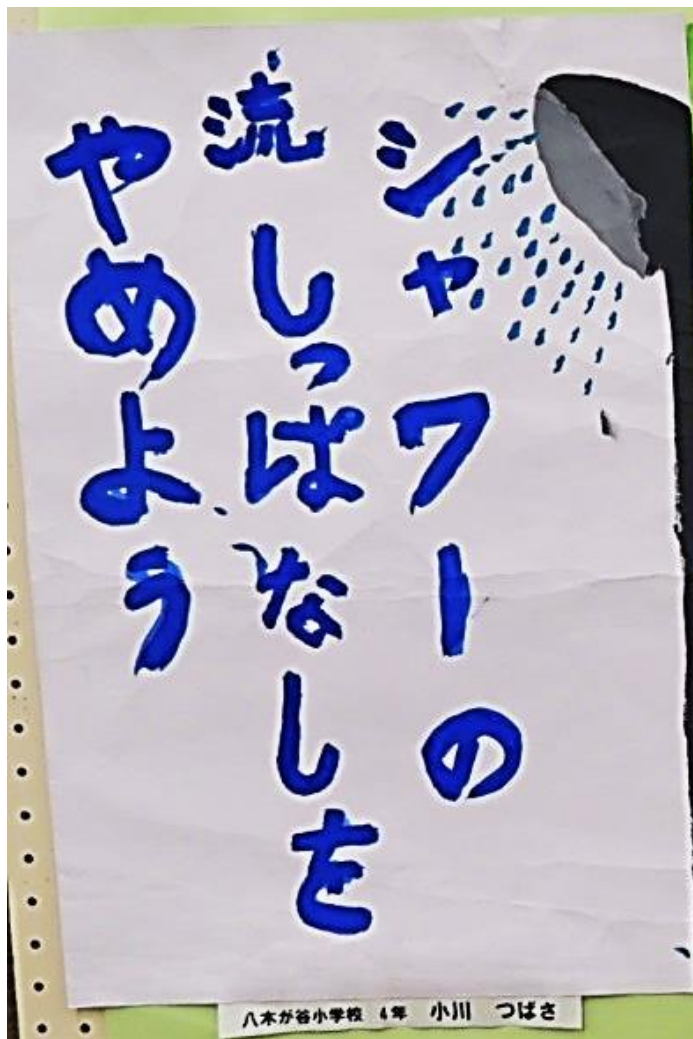 シャワーの
流しっぱなしを
やめよう
八木が谷小学校 4年 小川 つばさ